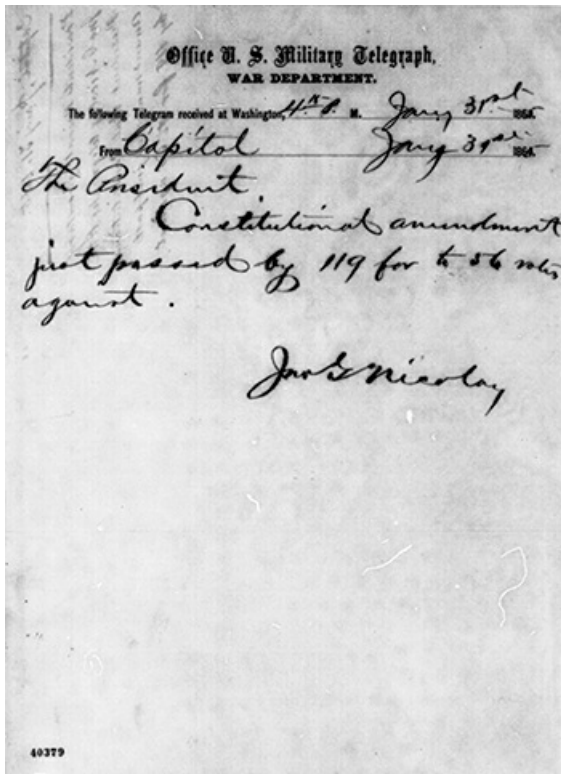 Office U. S. Military Telegraph,
WAR DEPARTMENT.
The following Telegram received at Washington, 4 P. M. Jany 31st 1865.
From Capitol Jany 31st 1865.
The President
Constitutional amendment
just passed by 119 for to 56 votes
against.
Jno G Nicolay
40379